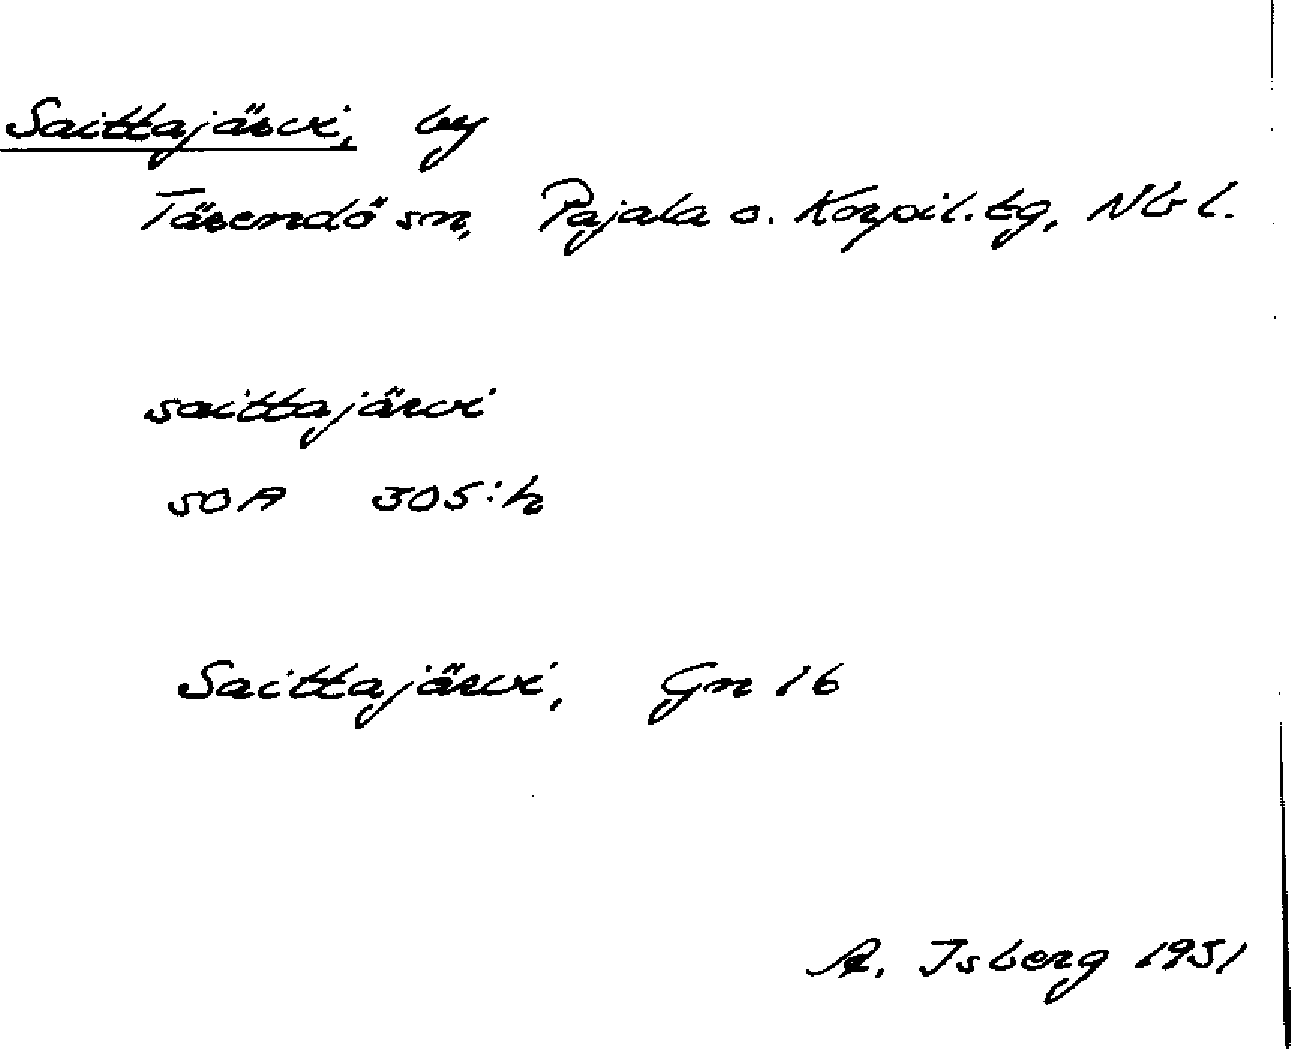 Saittajärvi, by
Tärendö sn, Pajala o. Korpil. tg, Nb l.
saittajärvi
SOA 305:h
Saittajärvi, Gn 16
A. Isberg 1951